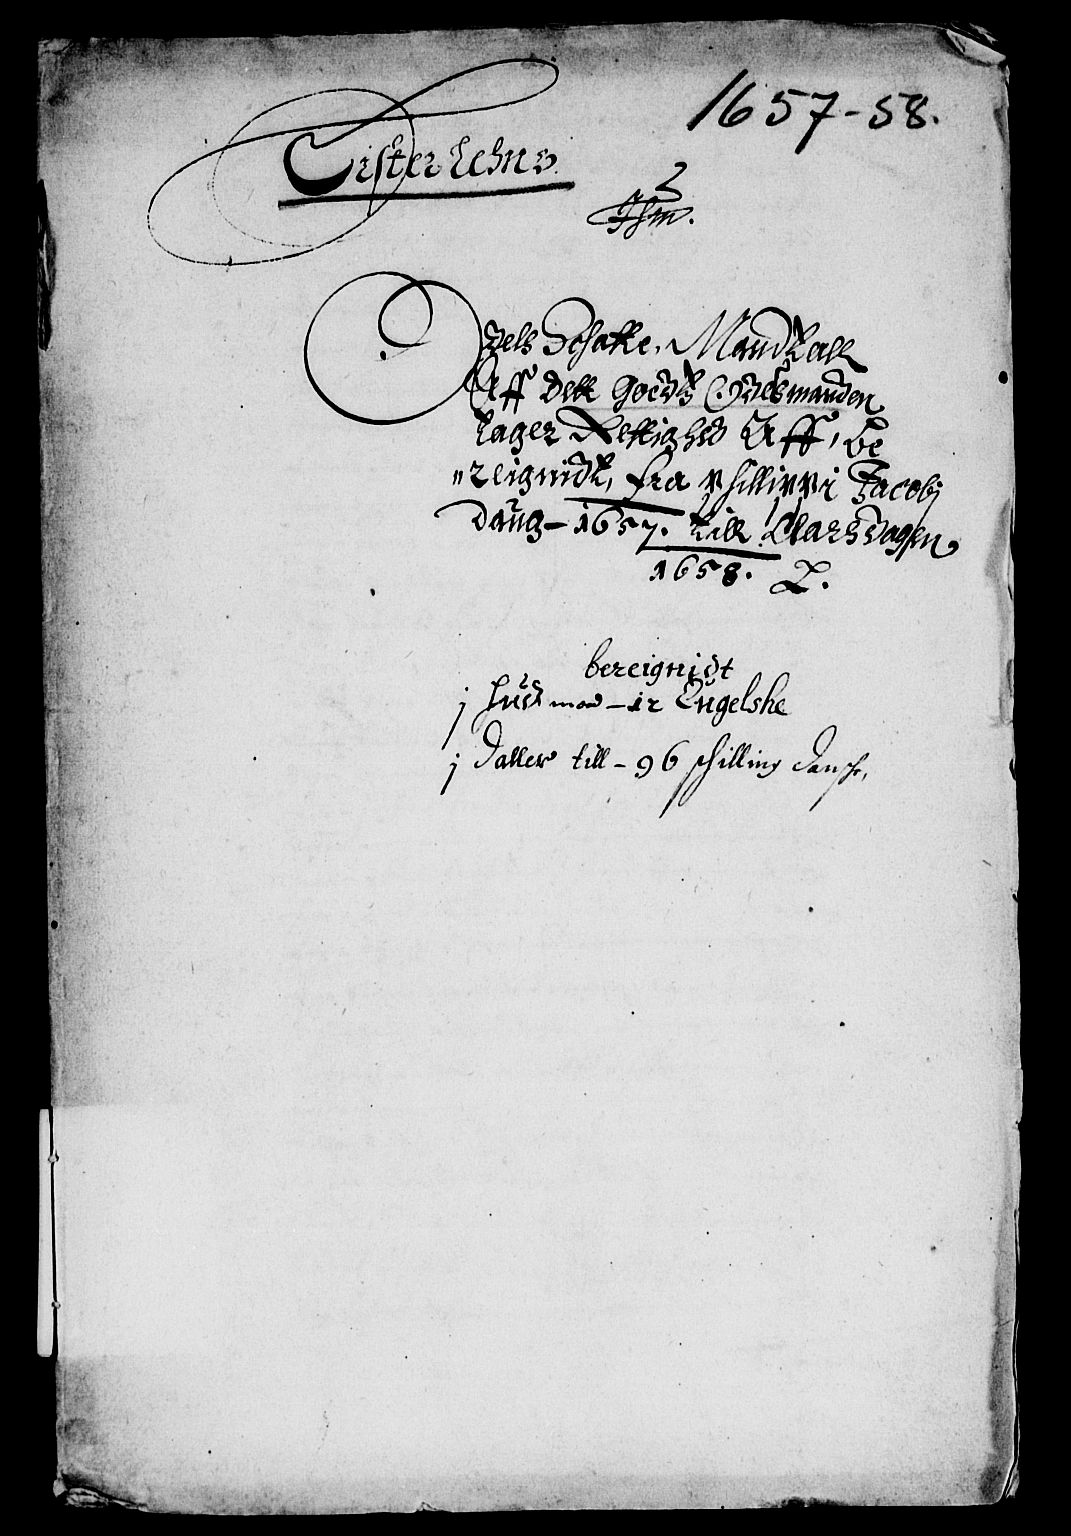 1657-58.
Lister Lehns
Odels Schatte, Mandtall
Aff dett goedtz Odelsmanden
tager Rettighed Aff, be
reignidt, fra Phillippi Jacobj
daug - 1657. till Aarsdagen
1658.
bereignidt
j hud mod - 12 Engelske
j daller till - 96 schilling dansche,